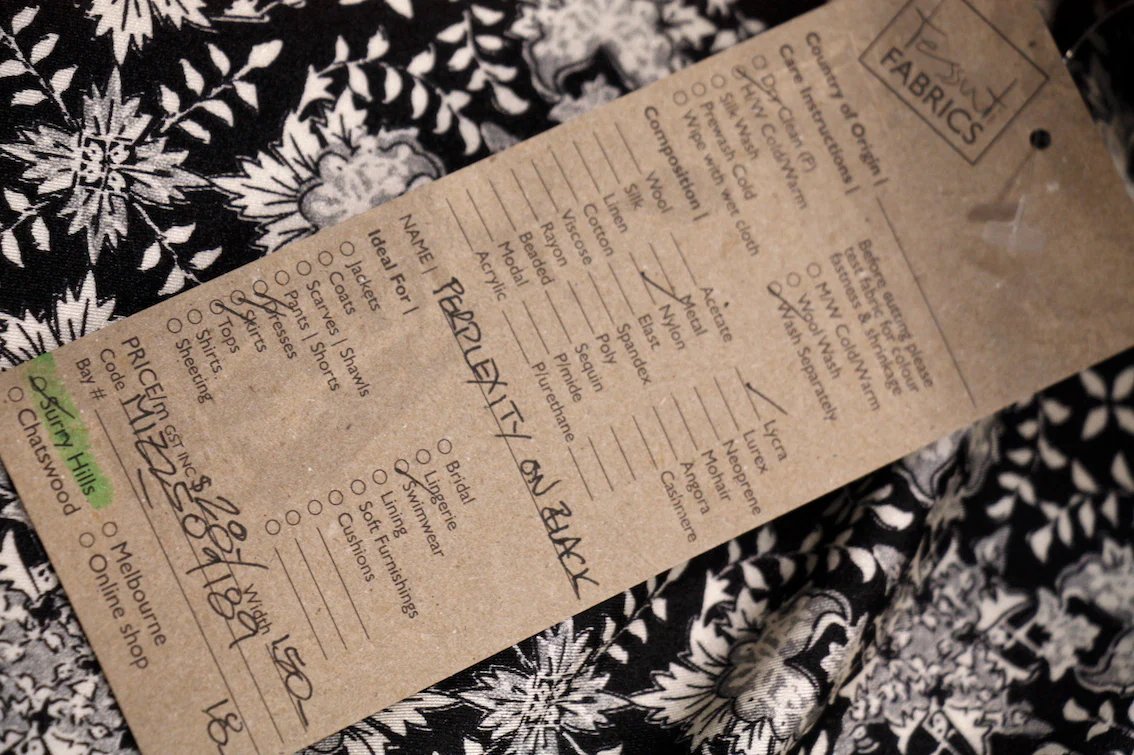 Tessuti
FABRICS
Country of Origin |
Care Instructions |
Dry Clean (P)
H/W Cold/Warm
Silk Wash
Prewash Cold
Wipe with wet cloth
Before cutting please
test fabric for colour
fastness & shrinkage
M/W Cold/Warm
Wool Wash
Wash Separately
Composition |
Wool
Silk
Linen
Cotton
Viscose
Rayon
Beaded
Modal
Acrylic
Acetate
Metal
Nylon
Elast
Spandex
Poly
Sequin
P/mide
P/urethane
Lycra
Lurex
Neoprene
Mohair
Angora
Cashmere
NAME | PERPLEXITY ON BLACK
Ideal For |
Jackets
Coats
Scarves | Shawls
Pants | Shorts
Dresses
Skirts
Tops
Shirts
Sheeting
Bridal
Lingerie
Swimwear
Lining
Soft Furnishings
Cushions
PRICE/m GST INC $28/ Width 150
Code
Bay #
Surry Hills
Chatswood
Melbourne
Online shop